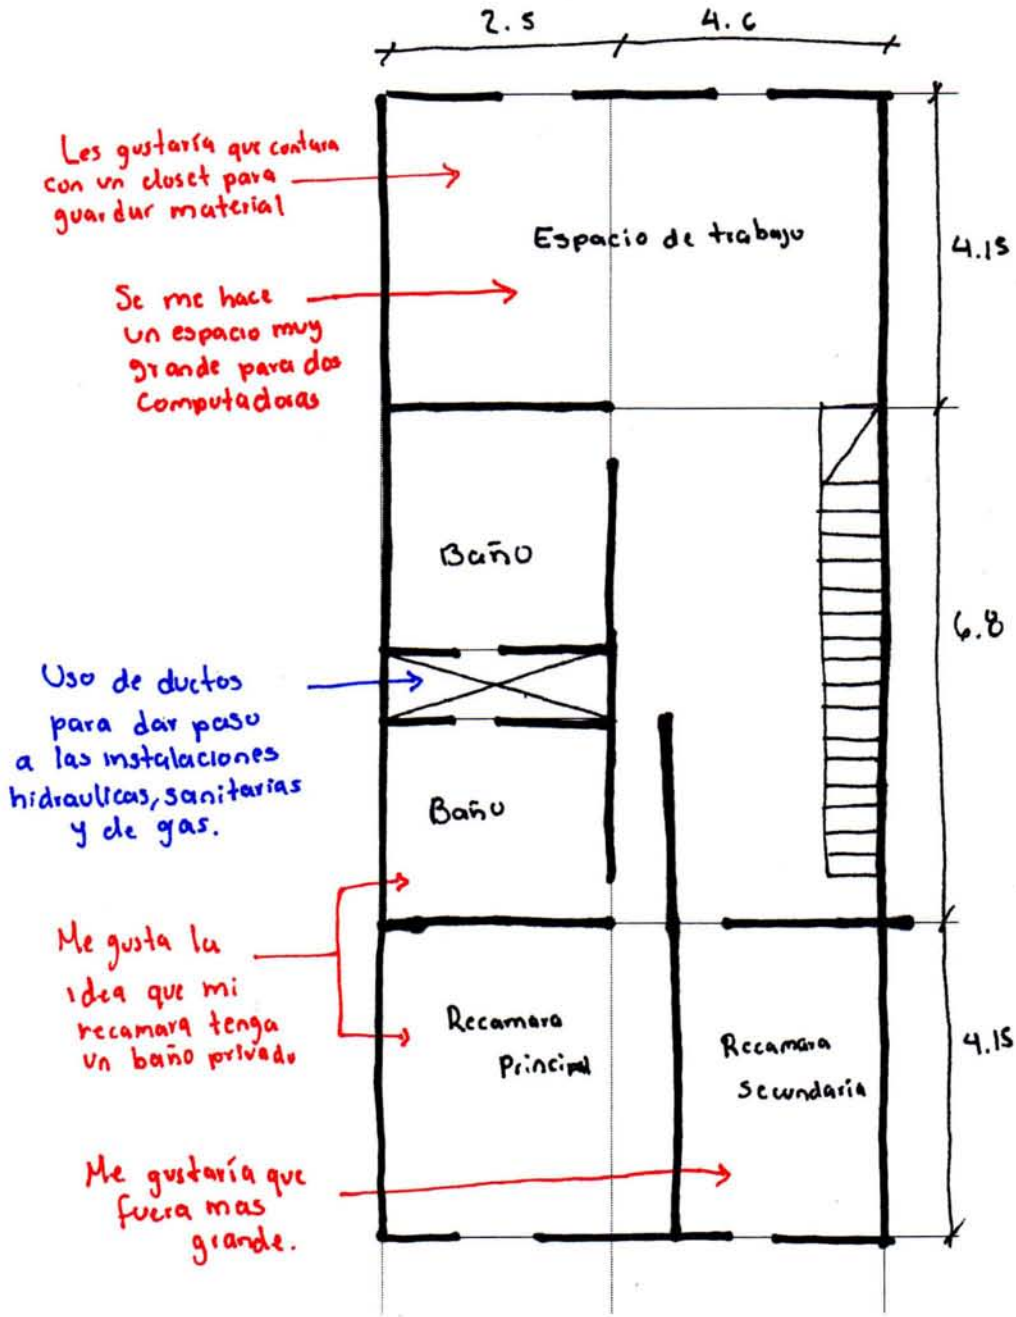 2.5 4.6
Les gustaría que contara
con un closet para
guardar material
Espacio de trabajo
4.15
Se me hace
un espacio muy
grande para dos
computadoras
Baño
6.8
Uso de ductos
para dar paso
a las instalaciones
hidraulicas, sanitarias
y de gas.
Baño
Me gusta la
idea que mi
recamara tenga
un baño privado
Recamara
Principal
Recamara
secundaría
4.15
Me gustaría que
fuera mas
grande.